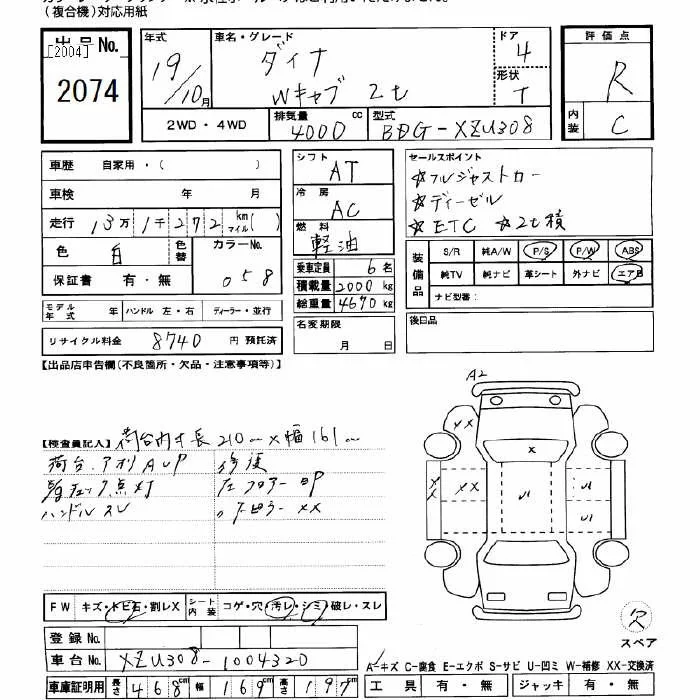 (複合機)対応用紙
出品No.
[2004]
2074
年式
19/10月
車名・グレード
ダイナ
Wキャブ 2t
ドア
4
形状
T
評価点
R
内装
C
2WD・4WD
排気量
4000 cc
型式
BDG-XZU308
車歴 自家用・( )
車検 年 月
走行 13万1千272 km マイル( )
色 白 色替 カラーNo. 058
保証書 有・無
モデル年式 年 ハンドル 左・右 ディーラー・並行
リサイクル料金 8740 円 預託済
シフト
AT
冷房
AC
燃料
軽油
乗車定員 6名
積載量 2000 kg
総重量 4670 kg
名変期限
月 日
セールスポイント
☆フルジャストカー
☆ディーゼル
☆ETC ☆2t積
装備品
S/R 純A/W P/S P/W ABS
純TV 純ナビ 革シート 外ナビ エアB
ナビ型番:
後日品
【出品店申告欄(不良箇所・欠品・注意事項等)】
【検査員記入】荷台内寸長210 × 幅161
荷台.アオリAUP 修復
チェック点灯
ハンドルスレ ピラーXX
FW キズ・トビ石・割レX シート内装 コゲ・穴・汚レ・シミ・破レ・スレ
登録No.
車台No. XZU308-1004320
車庫証明用 長さ 468cm 幅 169cm 高さ 197cm
A2
XX
X
XX
XX
U
U
U
欠
スペア
A-キズ C-腐食 E-エクボ S-サビ U-凹ミ W-補修 XX-交換済
工具 有・無 ジャッキ 有・無